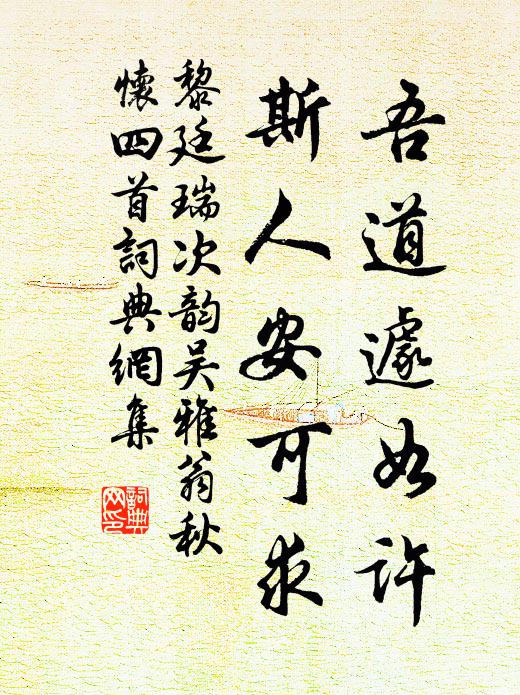 吾道遽如许
斯人安可求
黎廷瑞次韵吴雅翁秋
懷四首詞典網集
詞典
网印